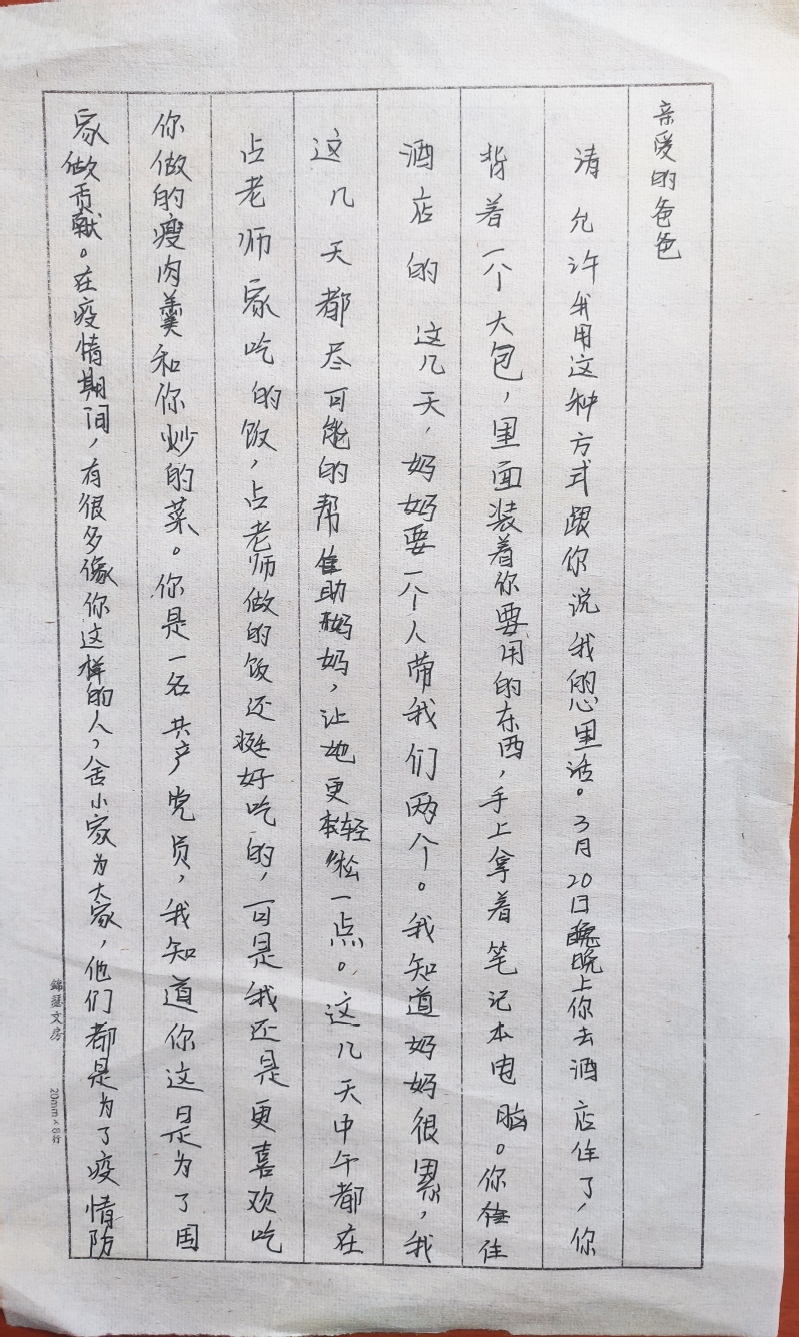 亲爱的爸爸
请允许我用这种方式跟你说我的心里话。3月20日晚上你去酒店住了,你
背着一个大包,里面装着你要用的东西,手上拿着笔记本电脑。你住
酒店的这几天,妈妈要一个人带我们两个。我知道妈妈很累,我
这几天都尽可能的帮助妈妈,让她更轻松一点。这几天中午都在
占老师家吃的饭,占老师做的饭还挺好吃的,可是我还是更喜欢吃
你做的瘦肉羹和你炒的菜。你是一名共产党员,我知道你这是为了国
家做贡献。在疫情期间,有很多像你这样的人,舍小家为大家,他们都是为了疫情防
錦瑟文房 20mm×8行